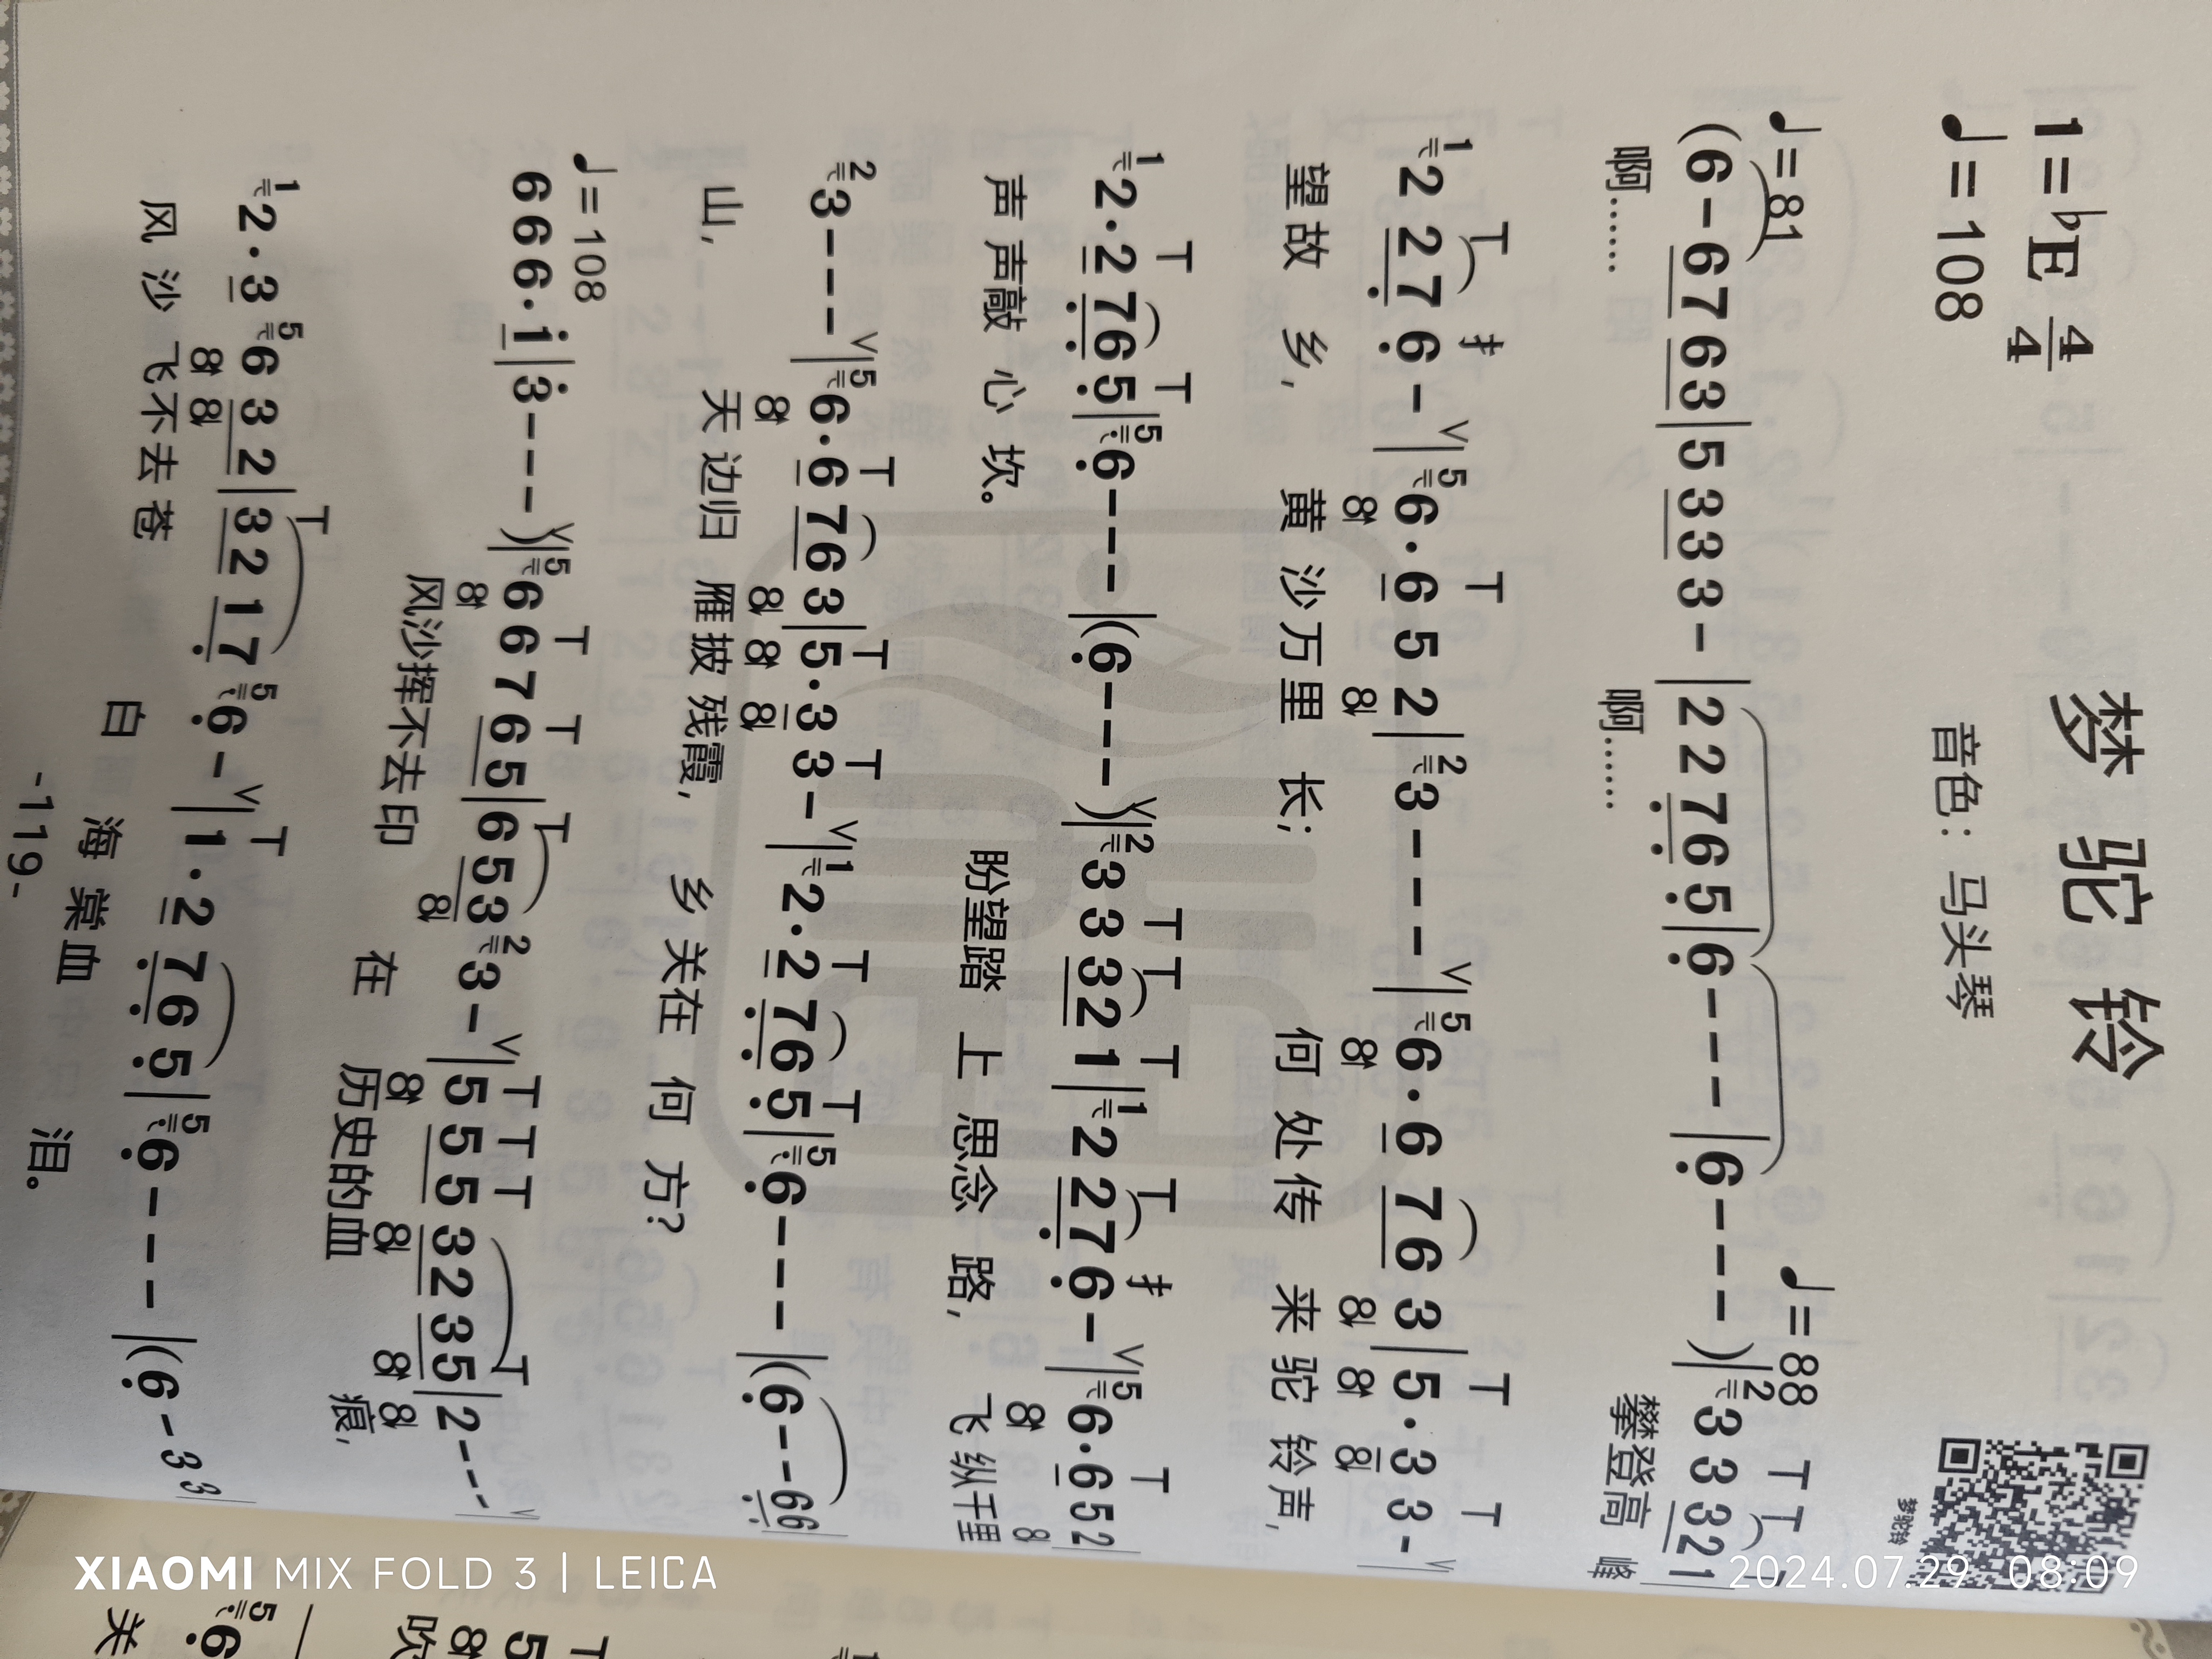 梦驼铃
1=♭E 4/4
♩=108
音色：马头琴
梦驼铃
♩=81
♩=88
(6-6763|5333-|22765|6---|6---)|²3 3 321|
啊…… 啊…… 攀登高峰
¹2 276-|⁵6·652|²3---|⁵6·6763|5·33-|
望故乡， 黄沙万里长； 何处传来驼铃声，
¹2·2765|⁵6---|(6---)|²33321|¹2276-|⁵6·652|
声声敲心坎。 盼望踏上思念路， 飞纵千里
²3---|⁵6·6763|5·33-|¹2·2765|⁵6---|(6--66|
山， 天边归雁披残霞， 乡关在何方？
♩=108
666·1|3---)|⁵66765|653²3-|5553235|2---|
风沙挥不去印在历史的血痕，
¹2·3⁵632|3217⁵6-|1·2765|⁵6---|(6-33|
风沙飞不去苍白海棠血泪。
-119-
XIAOMI MIX FOLD 3 | LEICA
2024.07.29 08:09
⁵6
关
5
吹